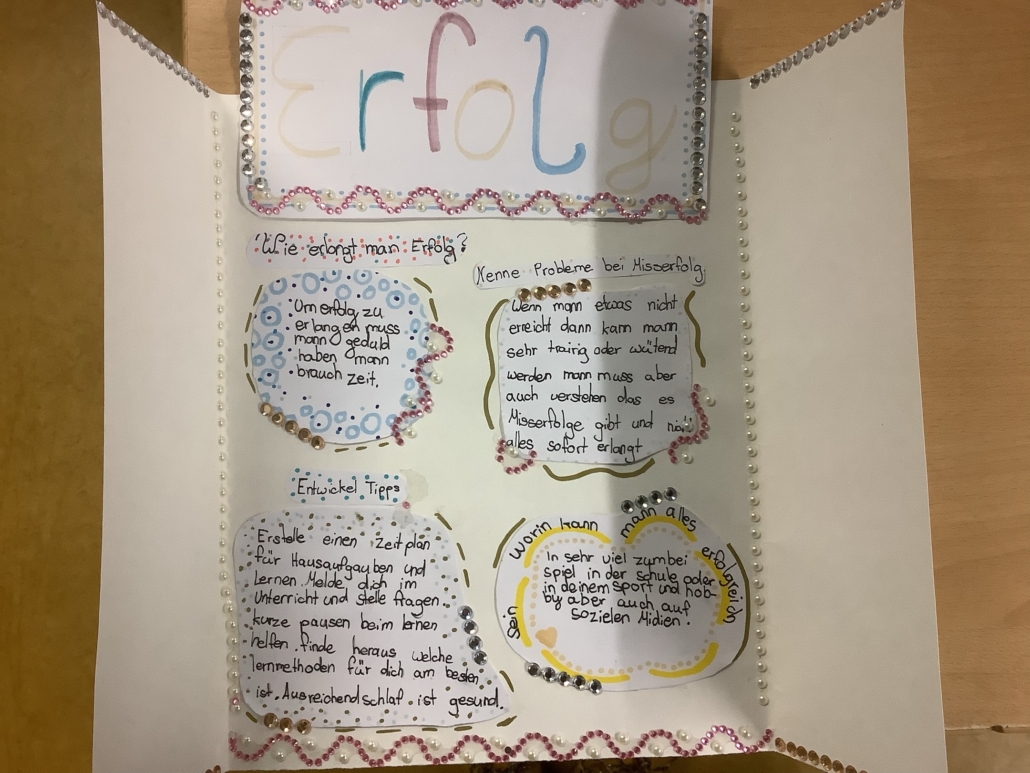 Erfolg
"Wie erlangt man Erfolg?
Um erfolg zu
erlangen muss
mann geduld
haben mann
brauch zeit.
Nenne Probleme bei Misserfolg
Wenn mann etwas nicht
erreicht dann kann mann
sehr trairig oder wütend
werden mann muss aber
auch verstehen das es
Misserfolge gibt und
alles sofort erlangt
Entwickel Tipps
Erstelle einen Zeitplan
für Hausaufgauben und
Lernen. Melde dich im
Unterricht und stelle fragen.
kurze pausen beim lernen
helfen. finde heraus welche
lernmethoden für dich am besten
ist. Ausreichend schlaf ist gesund.
Worin kann mann alles erfolgreich sein
In sehr viel zumbei
spiel in der schule oder
in deinem sport und hob-
by aber auch auf
Sozielen Midien!